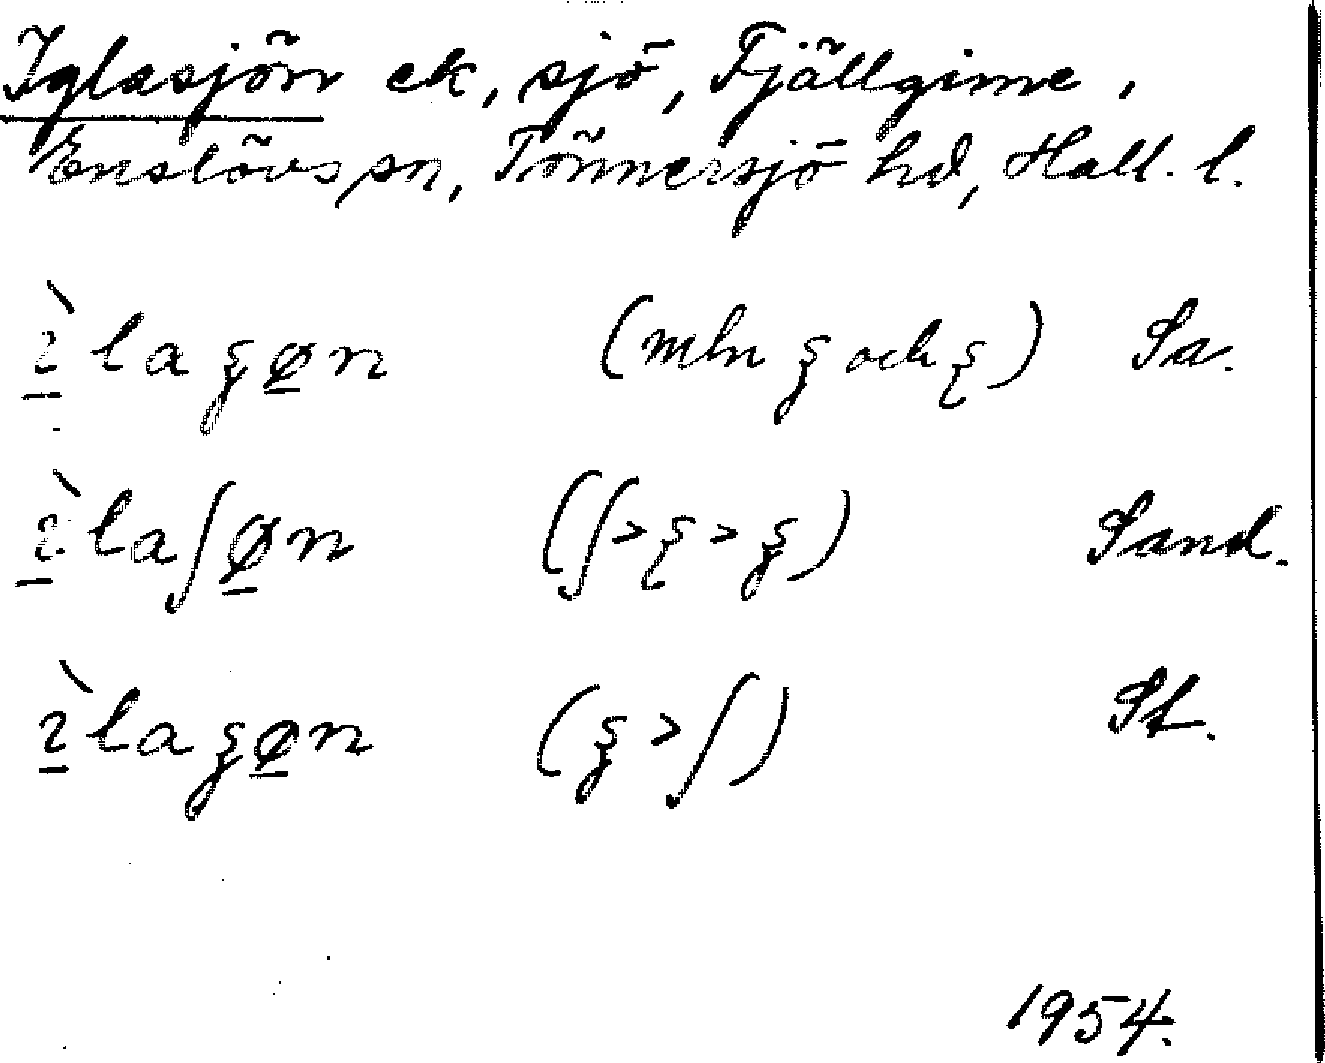 Iglasjön ek, sjö, Fjällgime,
Enslövs sn, Tönnersjö hd, Hall. l.
ìlaʂøn (mln ʂ och ȿ) Sa.
ìlaʃøn (ʃ > ȿ > ʂ) Sand.
ìlaʂøn (ʂ > ʃ) St.
1954.